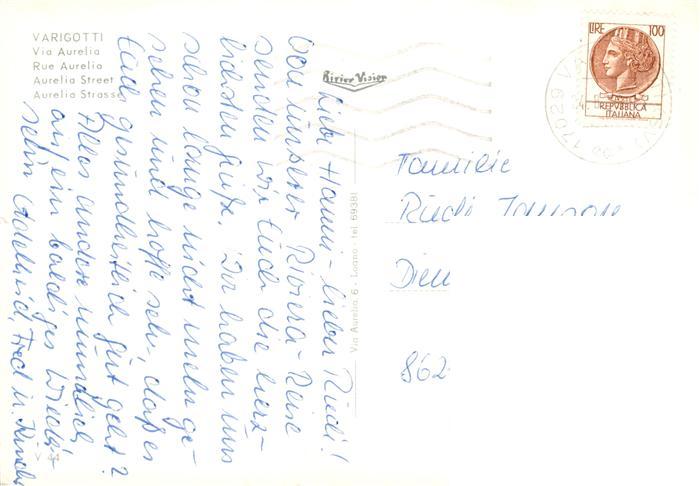 VARIGOTTI
Via Aurelia
Rue Aurelia
Aurelia Street
Aurelia Strasse
Liebe Hanni - lieber Ruedi!
Von unserer Riviera-Reise
senden wir Euch die herz-
lichsten Grüße. Wir haben uns
schon lange nicht mehr ge-
sehen und hoffe sehr, daß es
Euch gesundheitlich gut geht?
Alles andere mündlich,
auf ein baldiges Wieder-
sehn Adelheid, Fred u. Kinder
V 44
Rivier Visior
Via Aurelia 6 - Loano - tel 69381
LIRE 100
REPVBBLICA
ITALIANA
17029 VA
Familie
Ruedi
862